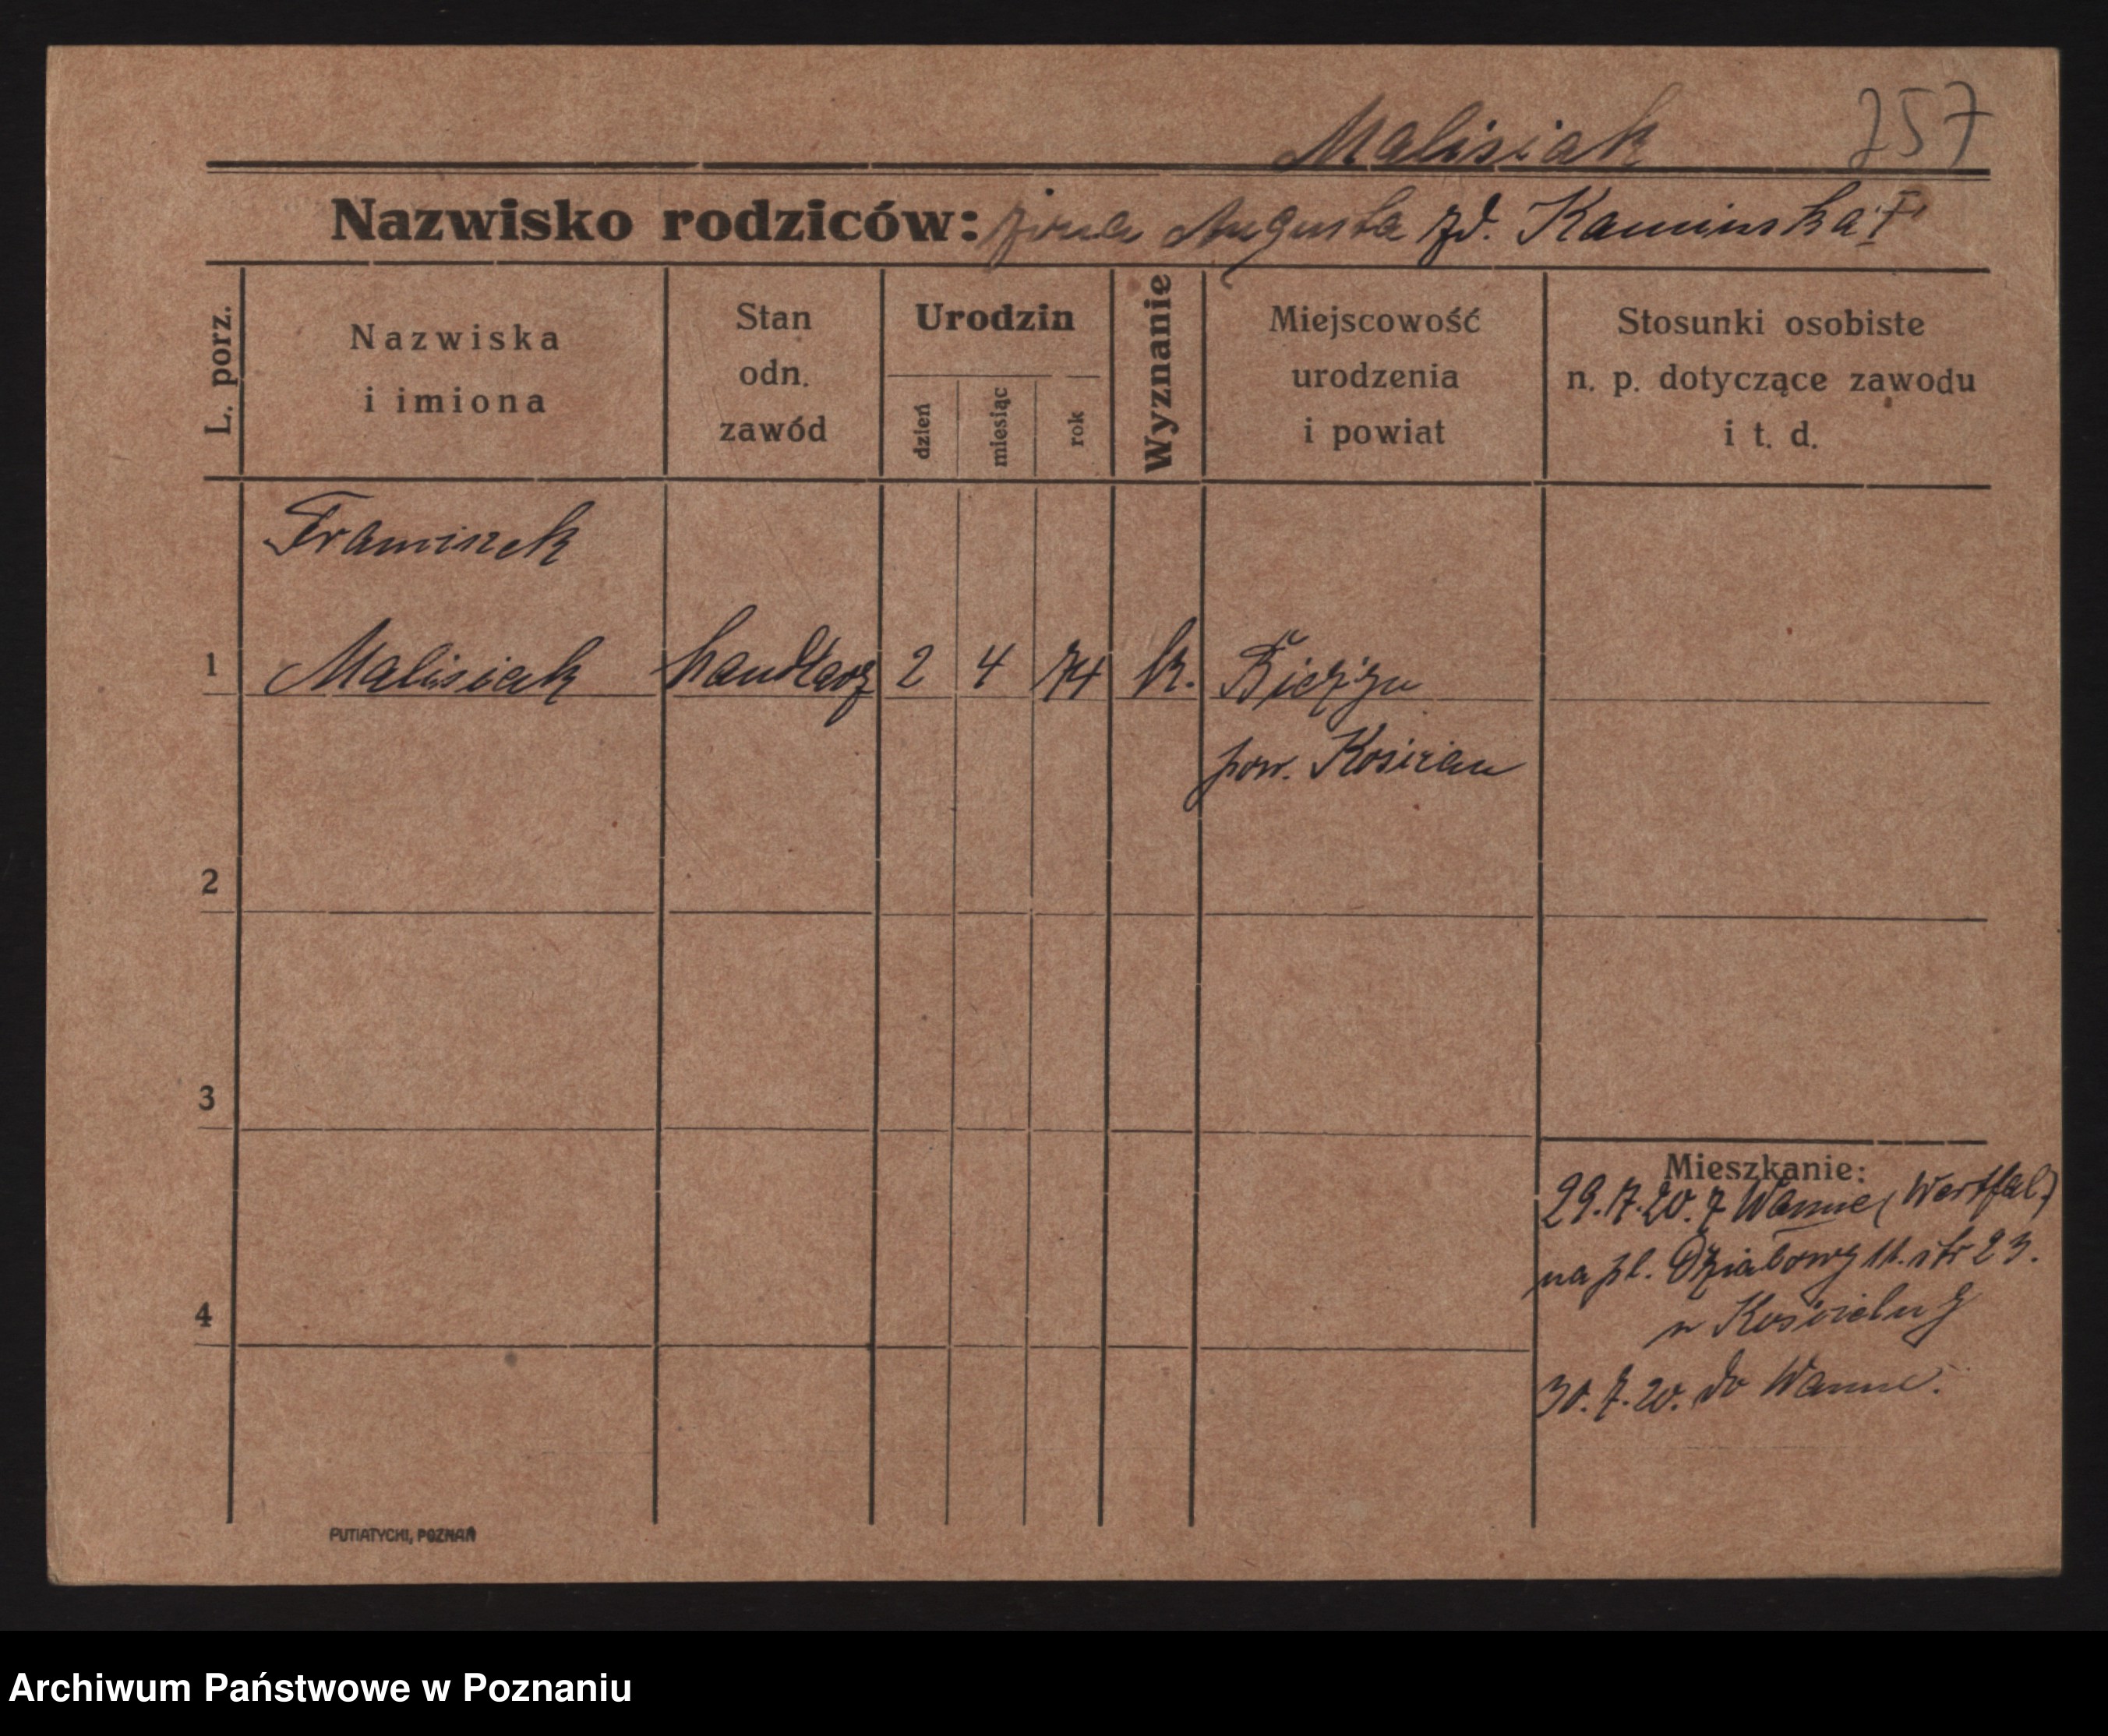 Malisiak 257
Nazwisko rodziców: żona Augusta zd. Kaminska
L. porz.
Nazwiska
i imiona
Stan
odn.
zawód
Urodzin
dzień
miesiąc
rok
Wyznanie
Miejscowość
urodzenia
i powiat
Stosunki osobiste
n. p. dotyczące zawodu
i t. d.
Franciszek
1 Malisiak handlarz 2 4 74 k.
pow. Kościan
2
3
4
Mieszkanie:
29.7.20. z Wanne (Westfal.)
na pl. Działowy 11. str 23.
30.7.20. do Wanne.
PUTIATYCKI, POZNAŃ
Archiwum Państwowe w Poznaniu